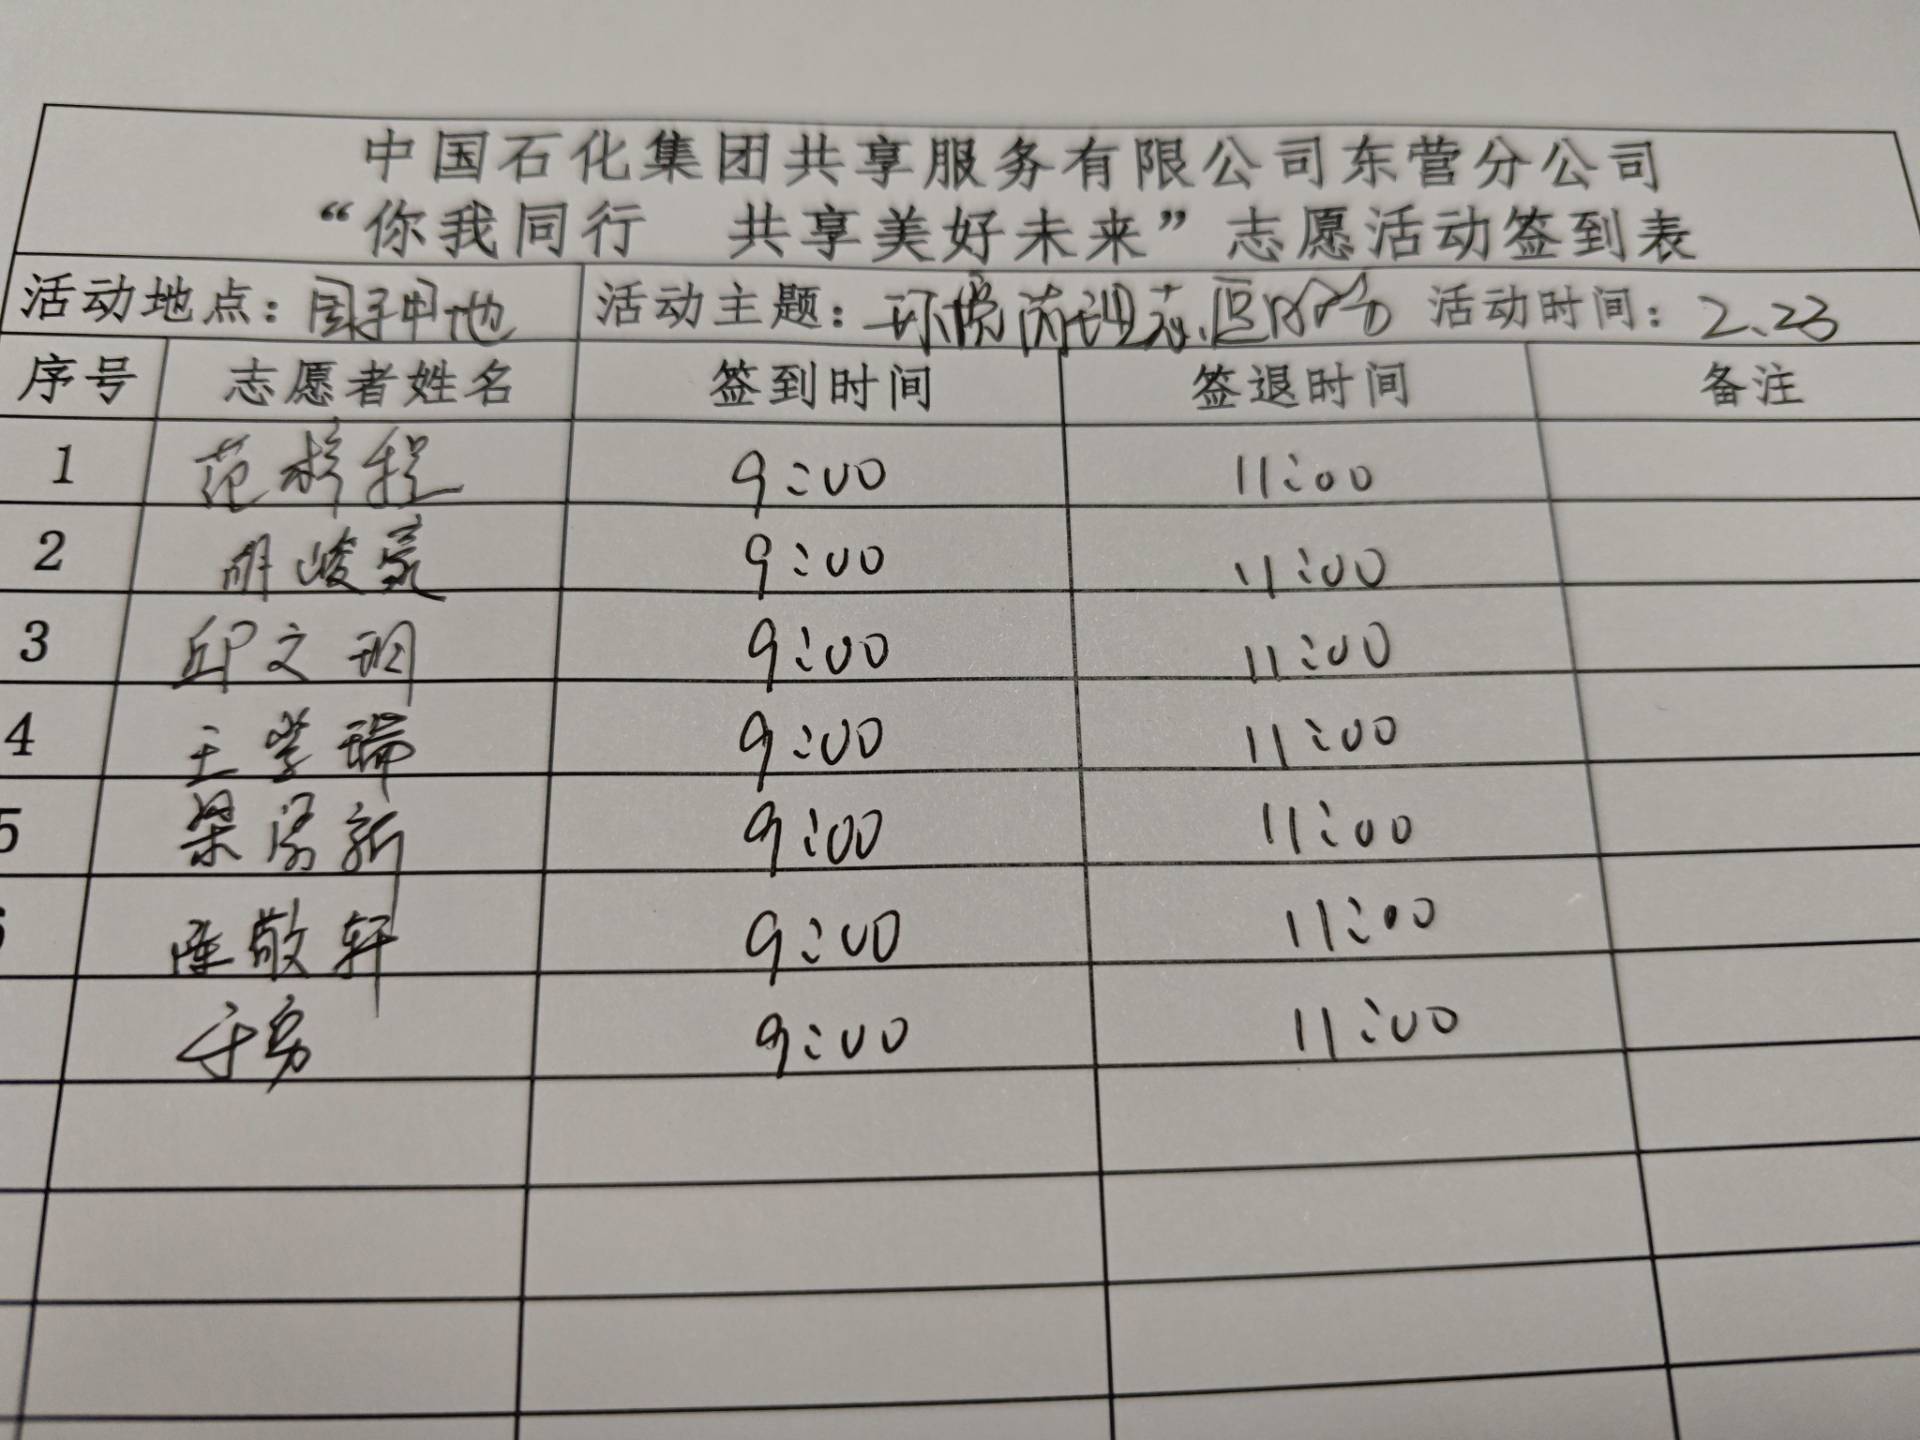 中国石化集团共享服务有限公司东营分公司
“你我同行 共享美好未来”志愿活动签到表
活动地点： 活动主题：环境 活动时间：2.23
序号 志愿者姓名 签到时间 签退时间 备注
1 范梓程 9:00 11:00
2 胡峻豪 9:00 11:00
3 邱文玥 9:00 11:00
4 王学瑞 9:00 11:00
5 梁 新 9:00 11:00
陈敬轩 9:00 11:00
于勇 9:00 11:00